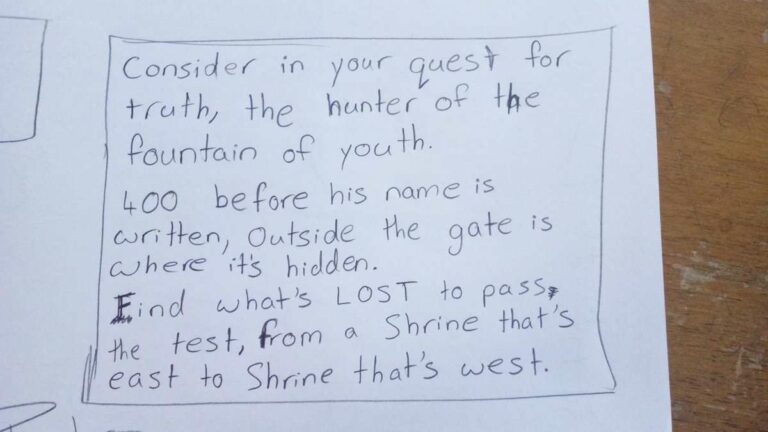 Consider in your quest for
truth, the hunter of the
fountain of youth.
400 before his name is
written, Outside the gate is
where it's hidden.
Find what's LOST to pass,
the test, from a Shrine that's
east to Shrine that's west.